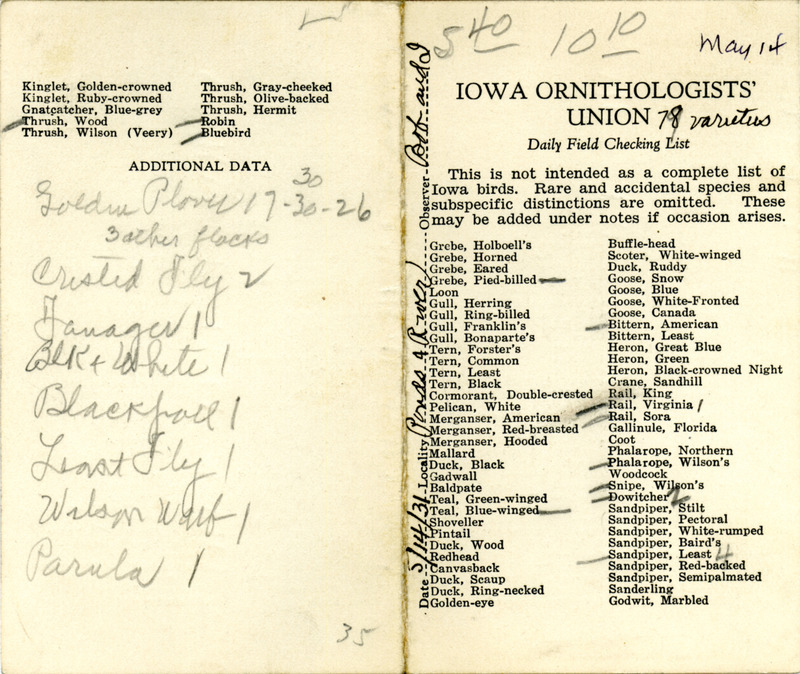 Kinglet, Golden-crowned
Kinglet, Ruby-crowned
Gnatcatcher, Blue-grey
Thrush, Wood
Thrush, Wilson (Veery)
Thrush, Gray-cheeked
Thrush, Olive-backed
Thrush, Hermit
Robin
Bluebird
ADDITIONAL DATA
Golden Plover 17-30-26
30
3 other flocks
Crested Fly 2
Tanager 1
Blk + White 1
Blackpoll 1
Least Fly 1
Wilson Warb 1
Parula 1
35
5 40 10 10 May 14
IOWA ORNITHOLOGISTS'
UNION 78 varieties
Daily Field Checking List
This is not intended as a complete list of
Iowa birds. Rare and accidental species and
subspecific distinctions are omitted. These
may be added under notes if occasion arises.
Date 5/14/31 Locality Ponds & River Observer Bob and I
Grebe, Holboell's
Grebe, Horned
Grebe, Eared
Grebe, Pied-billed
Loon
Gull, Herring
Gull, Ring-billed
Gull, Franklin's
Gull, Bonaparte's
Tern, Forster's
Tern, Common
Tern, Least
Tern, Black
Cormorant, Double-crested
Pelican, White
Merganser, American
Merganser, Red-breasted
Merganser, Hooded
Mallard
Duck, Black
Gadwall
Baldpate
Teal, Green-winged
Teal, Blue-winged
Shoveller
Pintail
Duck, Wood
Redhead
Canvasback
Duck, Scaup
Duck, Ring-necked
Golden-eye
Buffle-head
Scoter, White-winged
Duck, Ruddy
Goose, Snow
Goose, Blue
Goose, White-Fronted
Goose, Canada
Bittern, American
Bittern, Least
Heron, Great Blue
Heron, Green
Heron, Black-crowned Night
Crane, Sandhill
Rail, King
Rail, Virginia 1
Rail, Sora
Gallinule, Florida
Coot
Phalarope, Northern
Phalarope, Wilson's
Woodcock
Snipe, Wilson's
Dowitcher 2
Sandpiper, Stilt
Sandpiper, Pectoral
Sandpiper, White-rumped
Sandpiper, Baird's
Sandpiper, Least 4
Sandpiper, Red-backed
Sandpiper, Semipalmated
Sanderling
Godwit, Marbled